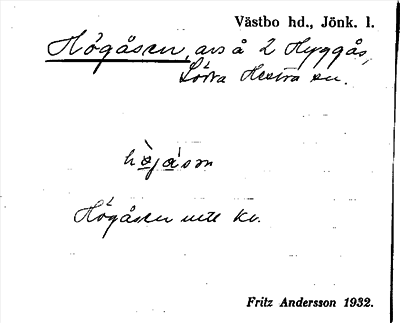 Västbo hd., Jönk. l.
Högåsen, avs å 2 Hyggås,
Södra Hestra sn.
hò̱ja̱´sən
Högåsen ute kv.
Fritz Andersson 1932.